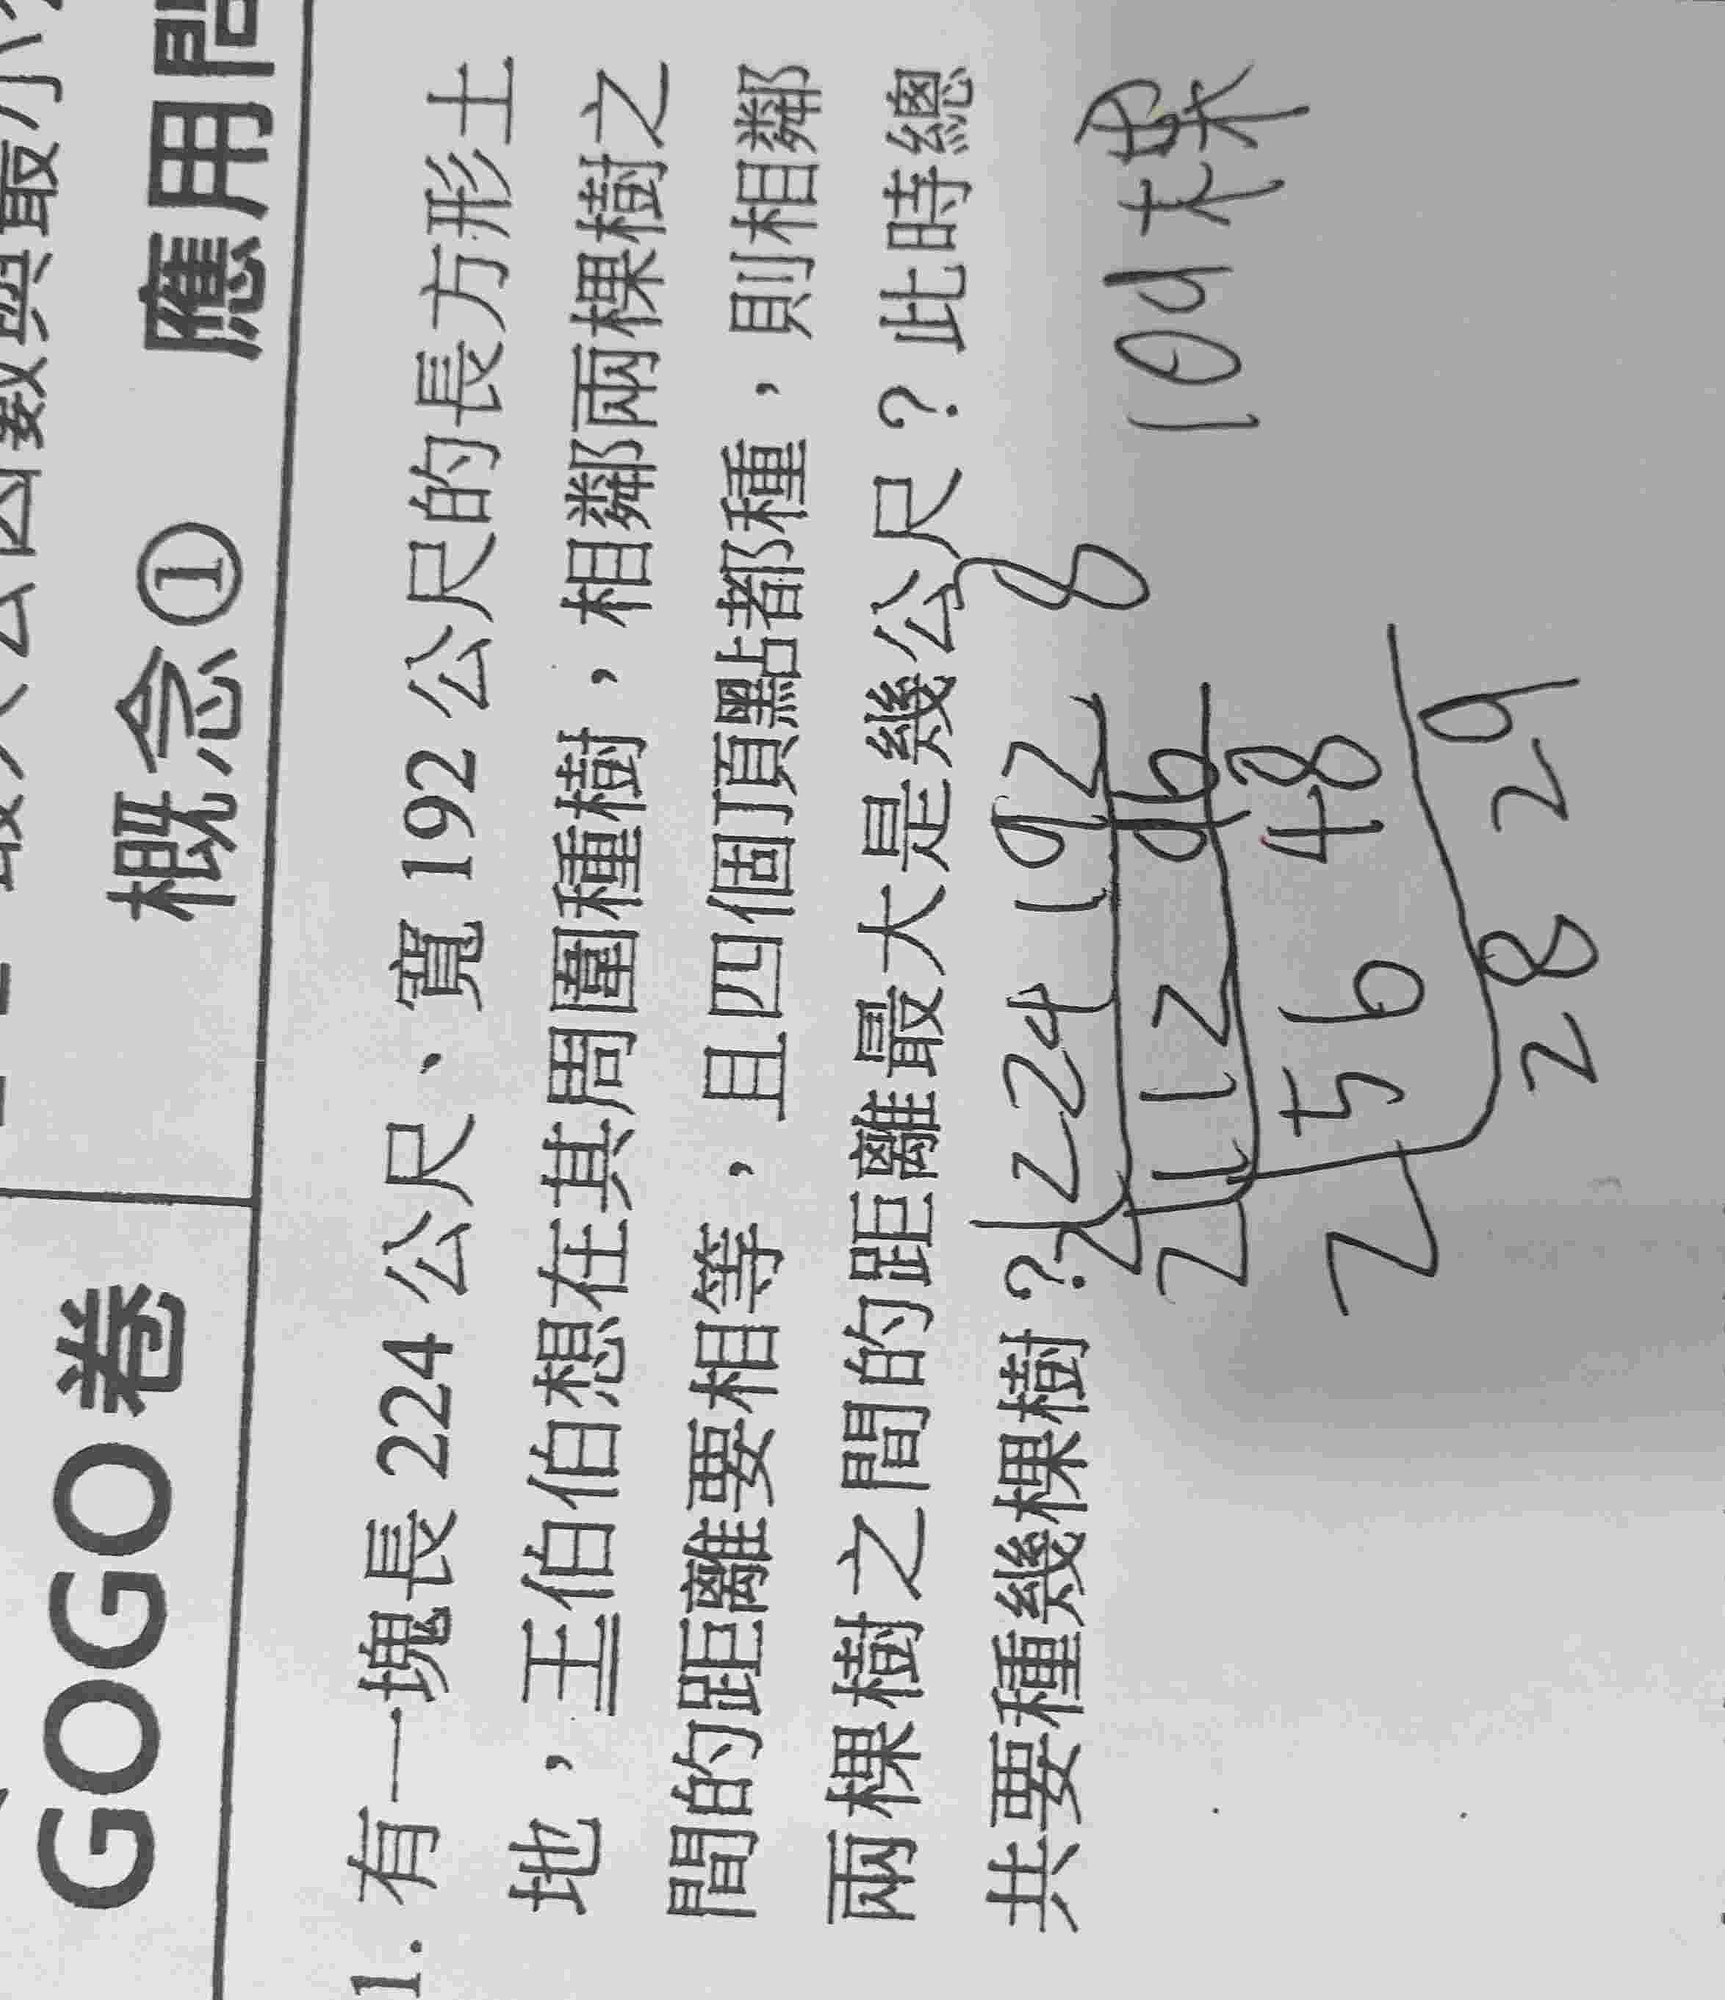 最大公因數與最小
GOGO 卷 概念① 應用問
1. 有一塊長 224 公尺、寬 192 公尺的長方形土
地，王伯伯想在其周圍種樹，相鄰兩棵樹之
間的距離要相等，且四個頂點都種，則相鄰
兩棵樹之間的距離最大是幾公尺？此時總
共要種幾棵樹？
8 104棵
2 224 192
2 112 96
2 56 48
28 24